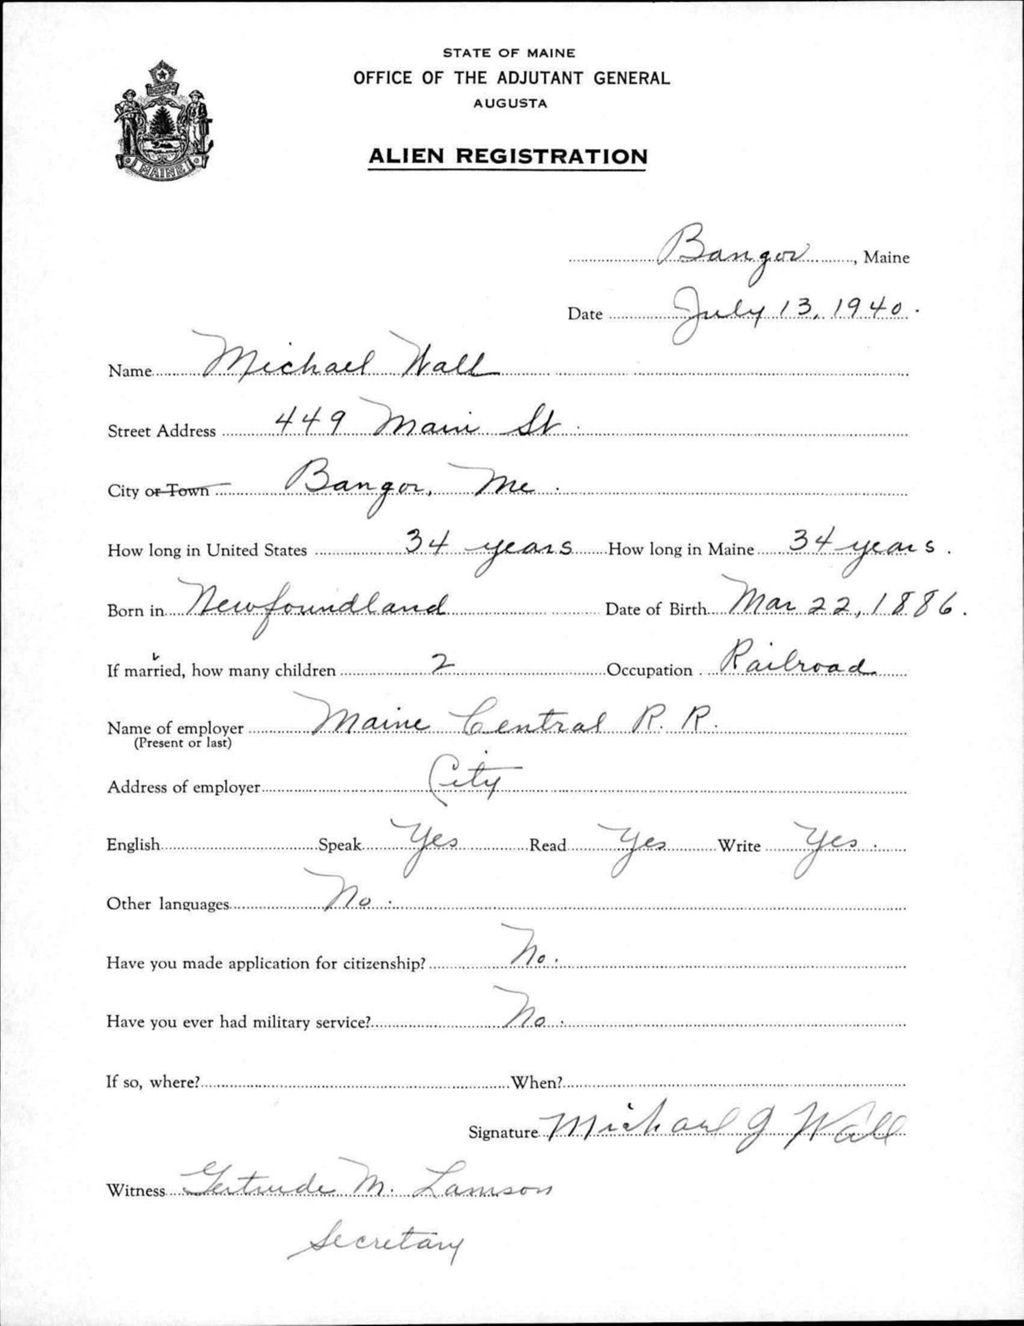 STATE OF MAINE
OFFICE OF THE ADJUTANT GENERAL
AUGUSTA
ALIEN REGISTRATION
MAINE
Bangor, Maine
Date July 13, 1940.
Name Michael Wall
Street Address 449 Main St.
City or Town Bangor, Me.
How long in United States 34 years How long in Maine 34 years.
Born in Newfoundland Date of Birth Mar 22, 1886.
If married, how many children 2 Occupation Railroad
Name of employer Maine Central R. R.
(Present or last)
Address of employer City
English Speak Yes Read Yes Write Yes.
Other languages No.
Have you made application for citizenship? No.
Have you ever had military service? No.
If so, where? When?
Signature Michael J Wall
Witness Gertrude M. Lamson
Secretary